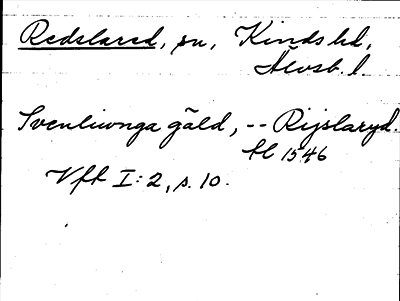 Redslared, sn, Kinds hd,
Älvsb. l.
Svenliunga gäld, -- Rijslaryd.
hl 1546
Vfb I:2, s. 10.